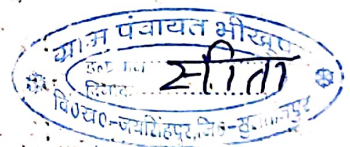 ग्राम पंचायत भीखूपुर
सीता
वि०ख०-जयसिंहपुर, जि०-सुलतानपुर